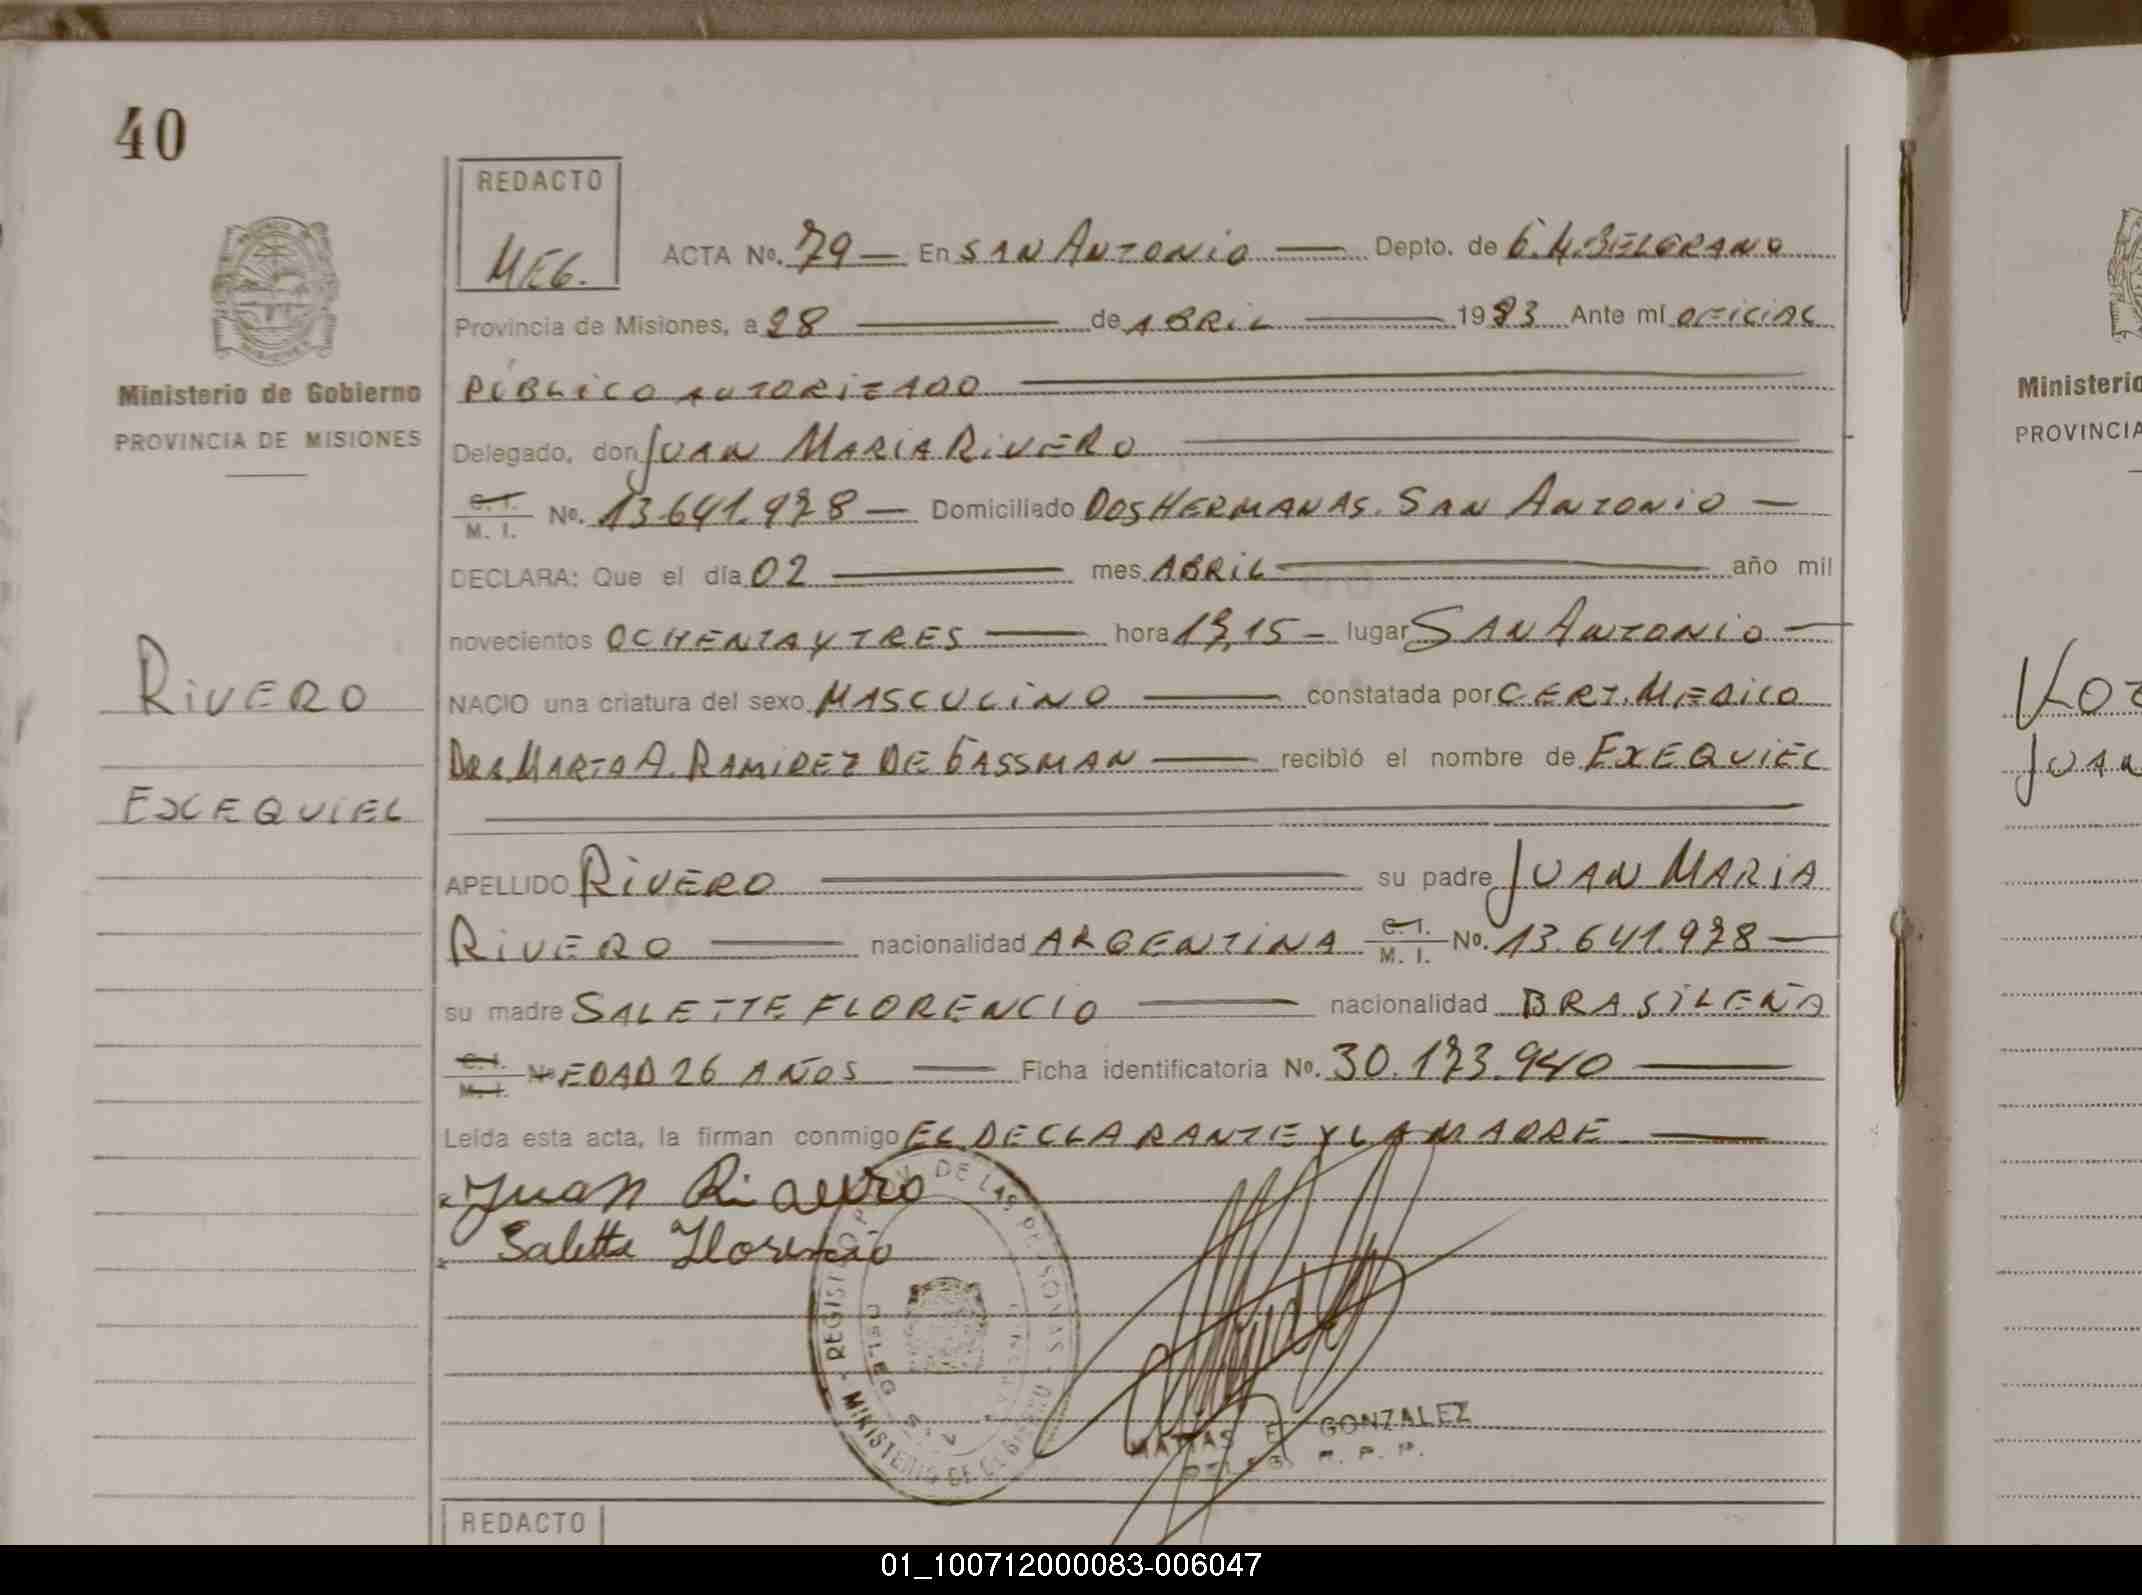 40
REDACTO
MEG.
ACTA Nº. 79 — En SAN ANTONIO — Depto. de G.M.BELGRANO
Provincia de Misiones, a 28 — de ABRIL — 1983 Ante mí OFICIAL
PÚBLICO AUTORIZADO
Delegado, don JUAN MARIA RIVERO
C. I.
M. I. Nº. 13.641.978 — Domiciliado DOS HERMANAS. SAN ANTONIO —
DECLARA: Que el día 02 — mes ABRIL — año mil
novecientos OCHENTA Y TRES — hora 13,15 — lugar SAN ANTONIO —
NACIO una criatura del sexo MASCULINO — constatada por CERT. MEDICO
DRA MARTA A. RAMIREZ DE GASSMAN — recibió el nombre de EXEQUIEL
APELLIDO RIVERO — su padre JUAN MARIA
RIVERO — nacionalidad ARGENTINA C. I.
M. I. Nº. 13.641.978 —
su madre SALETTE FLORENCIO — nacionalidad BRASILEÑA
C. I.
M. I. Nº EDAD 26 AÑOS — Ficha identificatoria Nº. 30.173.940 —
Leída esta acta, la firman conmigo EL DECLARANTE Y LA MADRE —
Juan Rivero
Salette Florencio
REGISTRO DE LAS PERSONAS
MINISTERIO DE GOBIERNO
MATIAS E GONZALEZ
R. P. P.
REDACTO
Ministerio de Gobierno
PROVINCIA DE MISIONES
RIVERO
EXEQUIEL
Ministerio
PROVINCIA
JUAN
01_100712000083-006047